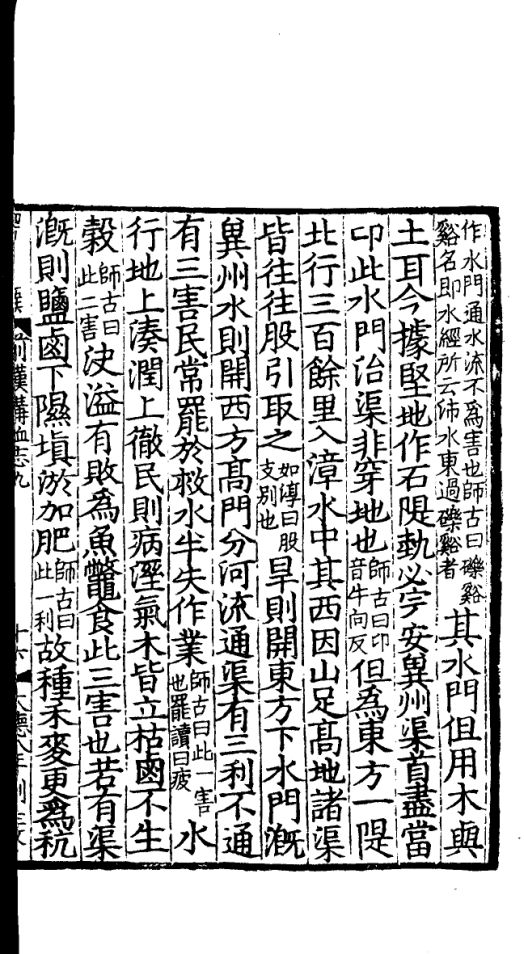 作水門通水流不為害也師古曰礫谿
谿名即水經所云泲水東過礫谿者
其水門但用木與
土耳今據堅地作石隄埶必完安冀州渠首盡當
卬此水門治渠非穿地也師古曰卬
音牛向反
但為東方一隄
北行三百餘里入漳水中其西因山足髙地諸渠
皆往往股引取之如淳曰股
支别也
旱則開東方下水門溉
冀州水則開西方髙門分河流通渠有三利不通
有三害民常罷於救水半失作業師古曰此一害
也罷讀曰疲
水
行地上湊潤上徹民則病溼氣木皆立枯鹵不生
穀師古曰
此二害
決溢有敗為魚鼈食此三害也若有渠
溉則鹽鹵下隰填淤加肥師古曰
此一利
故種禾麥更為秔
前漢溝洫志九
十六